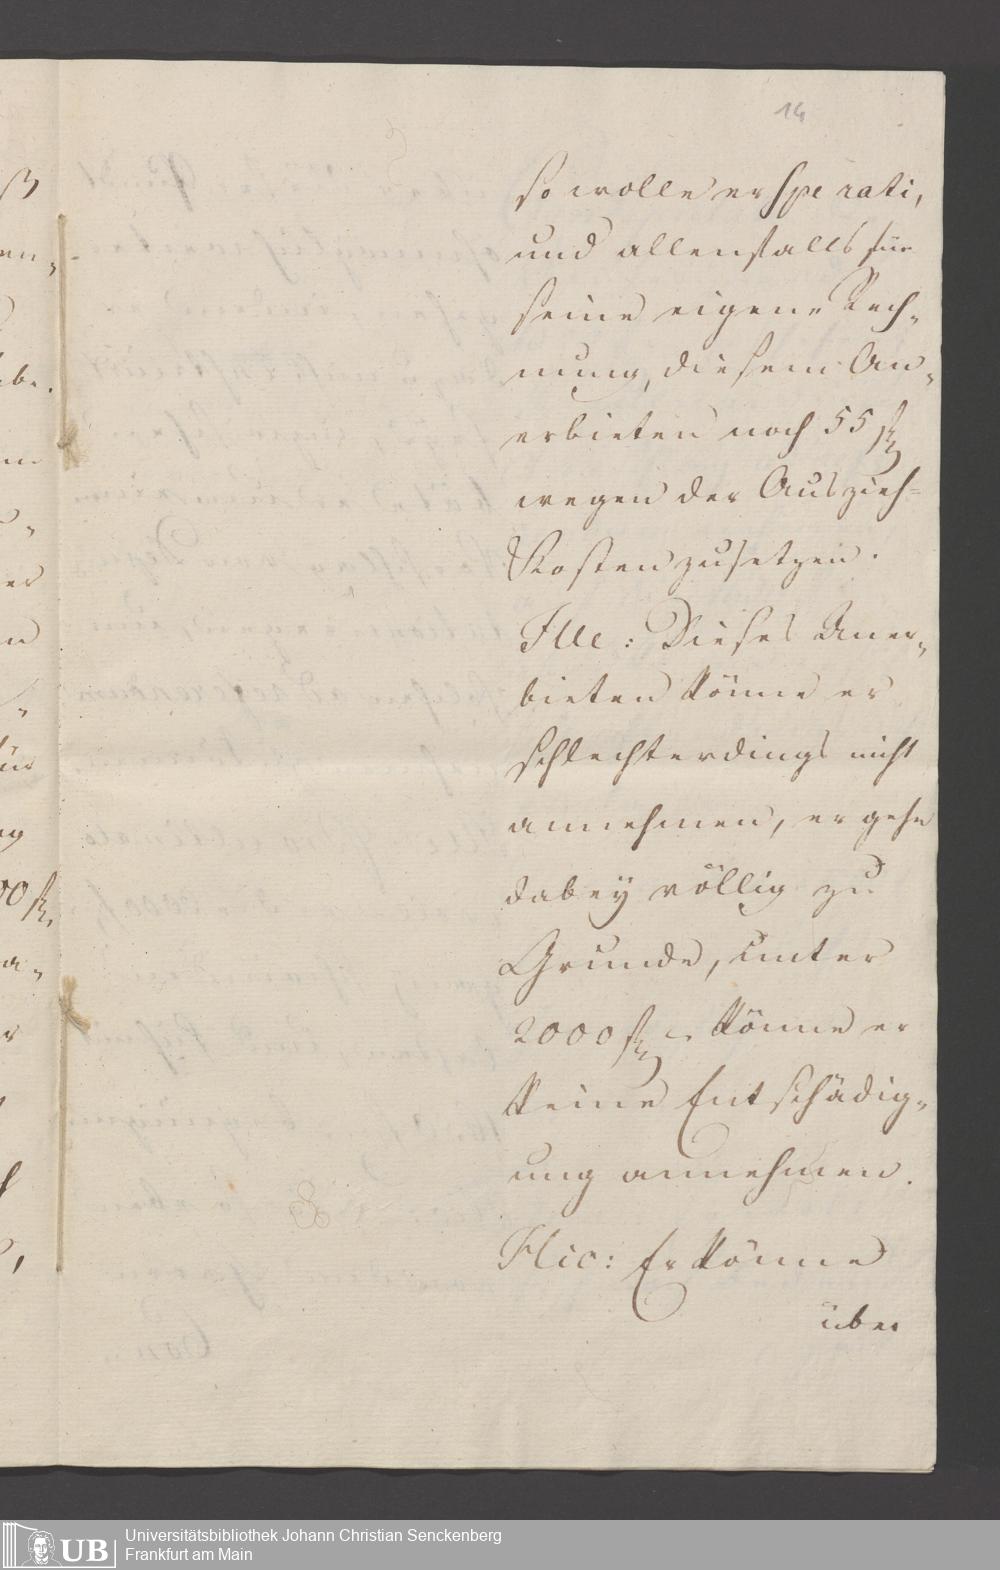 14
so wolle er spe rati,
und allenfalls für
seine eigene Rech-
nung, diesem An-
erbieten noch 55 fl
wegen der Auszieh-
Kosten zusetzen.
Ille: Dieses Aner-
bieten könne er
schlechterdings nicht
annehmen, er gehe
dabey völlig zu
Grunde, unter
2000 fl könne er
keine Entschädig-
ung annehmen.
Hic: Er könne
über
UB
Universitätsbibliothek Johann Christian Senckenberg
Frankfurt am Main